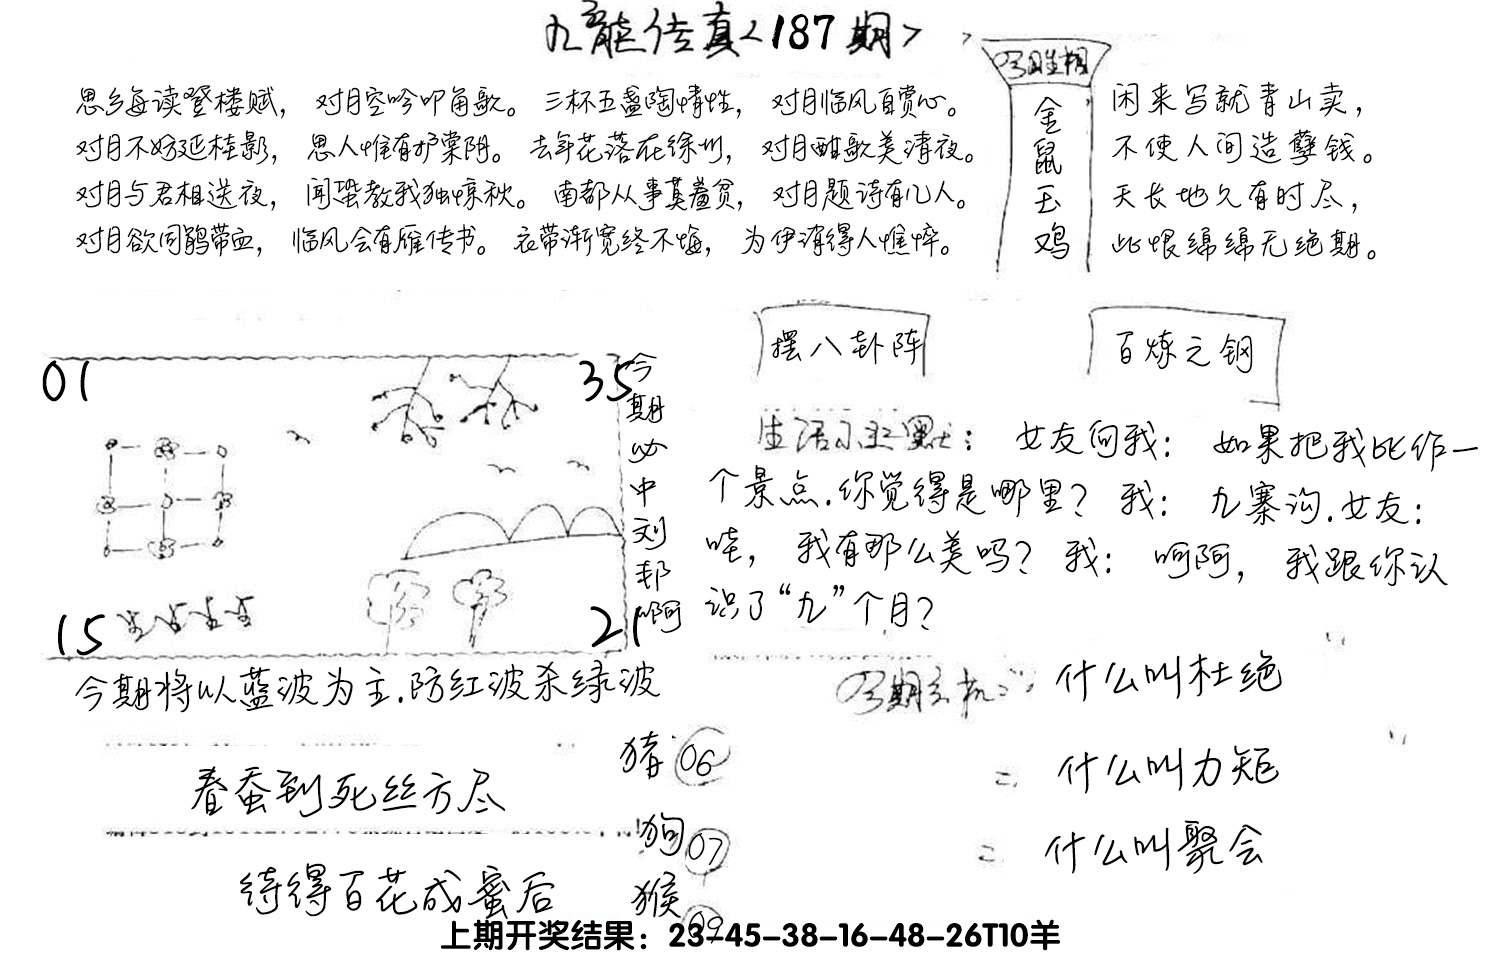 九龍传真<187期>
今期生相
金鼠玉鸡
思乡每读登楼赋，对月空吟叩角歌。三杯五盏陶情性，对月临风自赏心。
对月不妨延桂影，思人惟有护棠阴。去年花落在徐州，对月酣歌美清夜。
对月与君相送夜，闻蛩教我独惊秋。南都从事莫羞贫，对月题诗有几人。
对月欲问鹃带血，临风会有雁传书。衣带渐宽终不悔，为伊消得人憔悴。
闲来写就青山卖，
不使人间造孽钱。
天长地久有时尽，
此恨绵绵无绝期。
摆八卦阵
百炼之钢
01
35
15
21
今期必中刘邦啊
生活小幽默：女友问我：如果把我比作一
个景点.你觉得是哪里？我：九寨沟.女友：
哇，我有那么美吗？我：呵呵，我跟你认
识了“九”个月？
今期将以蓝波为主.防红波杀绿波
春蚕到死丝方尽
待得百花成蜜后
猪06
狗07
猴09
今期玄机：什么叫杜绝
什么叫力矩
什么叫聚会
上期开奖结果：23-45-38-16-48-26T10羊